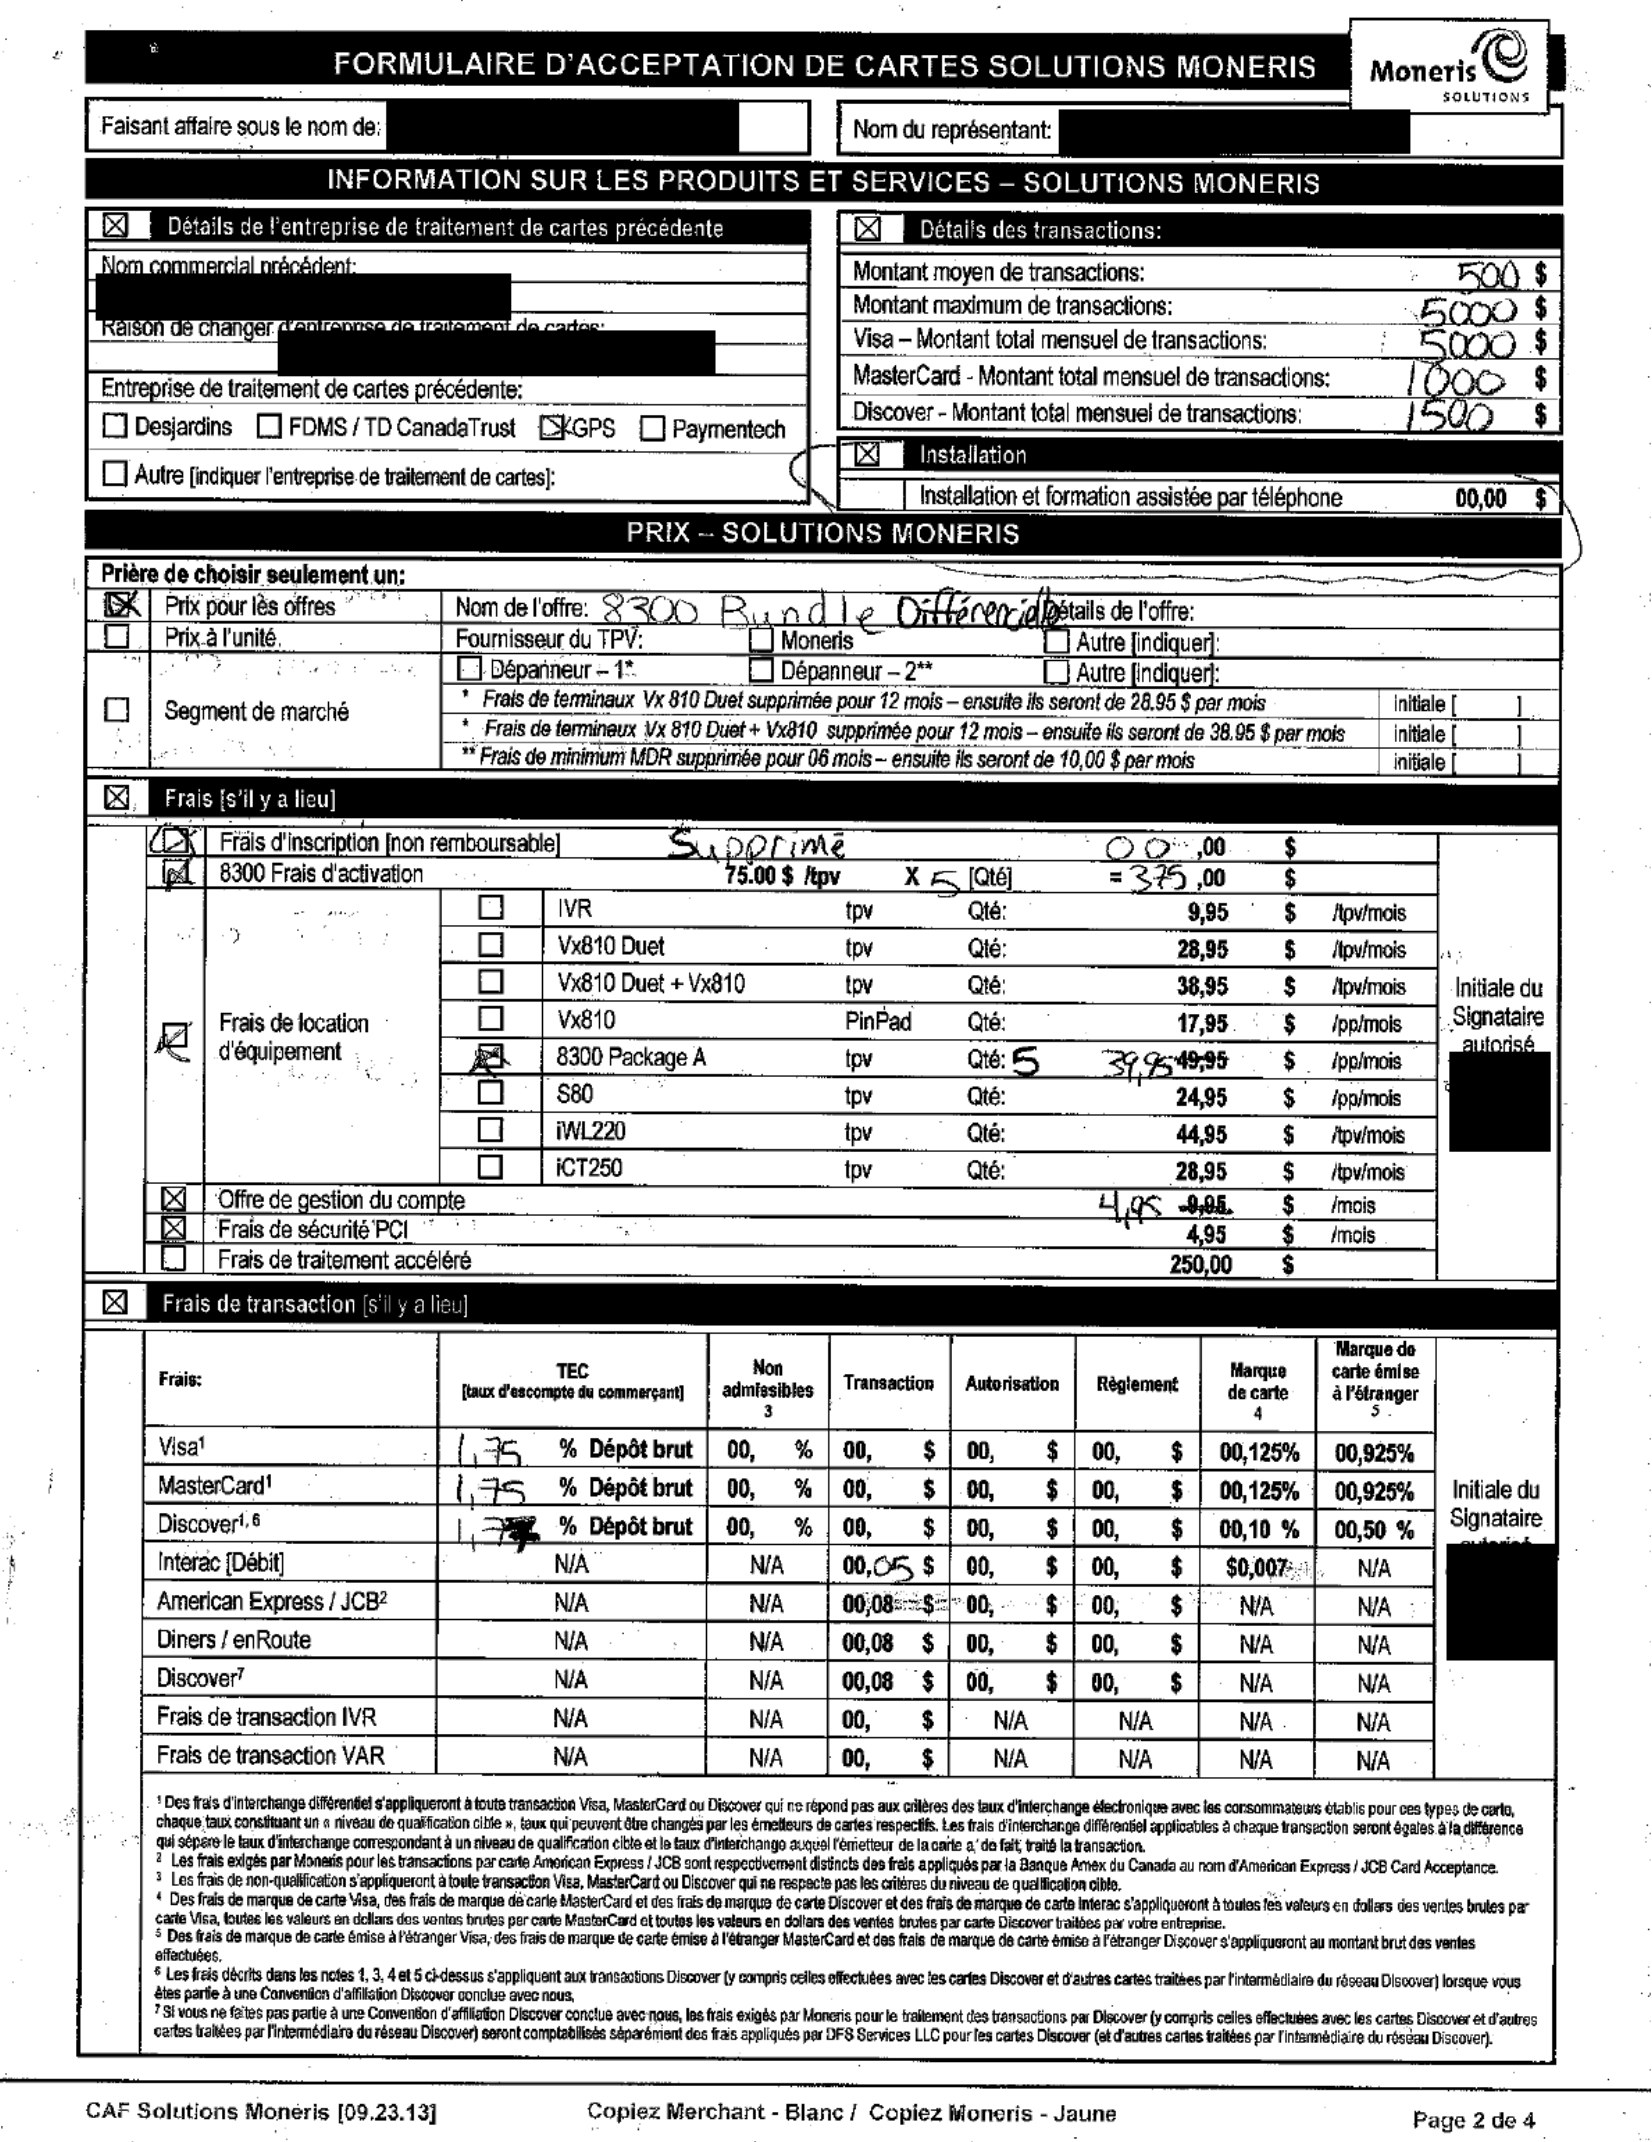 FORMULAIRE D'ACCEPTATION DE CARTES SOLUTIONS MONERIS
Moneris
SOLUTIONS
Faisant affaire sous le nom de:
Nom du représentant:
INFORMATION SUR LES PRODUITS ET SERVICES – SOLUTIONS MONERIS
Détails de l'entreprise de traitement de cartes précédente
Nom commercial précédent:
Raison de changer d'entreprise de traitement de cartes:
Entreprise de traitement de cartes précédente:
Desjardins FDMS / TD CanadaTrust GPS Paymentech
Autre [indiquer l'entreprise de traitement de cartes]:
Détails des transactions:
Montant moyen de transactions: 500 $
Montant maximum de transactions: 5000 $
Visa – Montant total mensuel de transactions: 5000 $
MasterCard - Montant total mensuel de transactions: 1000 $
Discover - Montant total mensuel de transactions: 1500 $
Installation
Installation et formation assistée par téléphone 00,00 $
PRIX – SOLUTIONS MONERIS
Prière de choisir seulement un:
Prix pour les offres Nom de l'offre: 8300 Bundle Différencielle Détails de l'offre:
Prix à l'unité. Fournisseur du TPV: Moneris Autre [indiquer]:
Dépanneur – 1* Dépanneur – 2** Autre [indiquer]:
Segment de marché
* Frais de terminaux Vx 810 Duet supprimée pour 12 mois – ensuite ils seront de 28.95 $ par mois initiale [ ]
* Frais de terminaux Vx 810 Duet + Vx810 supprimée pour 12 mois – ensuite ils seront de 38.95 $ par mois initiale [ ]
** Frais de minimum MDR supprimée pour 06 mois – ensuite ils seront de 10,00 $ par mois initiale [ ]
Frais [s'il y a lieu]
Frais d'inscription [non remboursable] Supprimé 00 ,00 $
8300 Frais d'activation 75.00 $ /tpv X 5 [Qté] = 375 ,00 $
Frais de location d'équipement
IVR tpv Qté: 9,95 $ /tpv/mois
Vx810 Duet tpv Qté: 28,95 $ /tpv/mois
Vx810 Duet + Vx810 tpv Qté: 38,95 $ /tpv/mois
Vx810 PinPad Qté: 17,95 $ /pp/mois
8300 Package A tpv Qté: 5 39,95 49,95 $ /pp/mois
S80 tpv Qté: 24,95 $ /pp/mois
iWL220 tpv Qté: 44,95 $ /tpv/mois
iCT250 tpv Qté: 28,95 $ /tpv/mois
Initiale du
Signataire
autorisé
Offre de gestion du compte 4,95 9,95 $ /mois
Frais de sécurité PCI 4,95 $ /mois
Frais de traitement accéléré 250,00 $
Frais de transaction [s'il y a lieu]
Frais: TEC [taux d'escompte du commerçant] Non admissibles 3 Transaction Autorisation Règlement Marque de carte 4 Marque de carte émise à l'étranger 5
Visa¹ 1,75 % Dépôt brut 00, % 00, $ 00, $ 00, $ 00,125% 00,925%
MasterCard¹ 1,75 % Dépôt brut 00, % 00, $ 00, $ 00, $ 00,125% 00,925%
Discover¹,⁶ % Dépôt brut 00, % 00, $ 00, $ 00, $ 00,10 % 00,50 %
Interac [Débit] N/A N/A 00,05 $ 00, $ 00, $ $0,007 N/A
American Express / JCB² N/A N/A 00,08 $ 00, $ 00, $ N/A N/A
Diners / enRoute N/A N/A 00,08 $ 00, $ 00, $ N/A N/A
Discover⁷ N/A N/A 00,08 $ 00, $ 00, $ N/A N/A
Frais de transaction IVR N/A N/A 00, $ N/A N/A N/A N/A
Frais de transaction VAR N/A N/A 00, $ N/A N/A N/A N/A
Initiale du
Signataire
¹ Des frais d'interchange différentiel s'appliqueront à toute transaction Visa, MasterCard ou Discover qui ne répond pas aux critères des taux d'interchange électronique avec les consommateurs établis pour ces types de carte,
chaque taux constituant un « niveau de qualification cible », taux qui peuvent être changés par les émetteurs de cartes respectifs. Les frais d'interchange différentiel applicables à chaque transaction seront égales à la différence
qui sépare le taux d'interchange correspondant à un niveau de qualification cible et le taux d'interchange auquel l'émetteur de la carte a, de fait, traité la transaction.
² Les frais exigés par Moneris pour les transactions par carte American Express / JCB sont respectivement distincts des frais appliqués par la Banque Amex du Canada au nom d'American Express / JCB Card Acceptance.
³ Les frais de non-qualification s'appliqueront à toute transaction Visa, MasterCard ou Discover qui ne respecte pas les critères du niveau de qualification cible.
⁴ Des frais de marque de carte Visa, des frais de marque de carte MasterCard et des frais de marque de carte Discover et des frais de marque de carte Interac s'appliqueront à toutes les valeurs en dollars des ventes brutes par
carte Visa, toutes les valeurs en dollars des ventes brutes par carte MasterCard et toutes les valeurs en dollars des ventes brutes par carte Discover traitées par votre entreprise.
⁵ Des frais de marque de carte émise à l'étranger Visa, des frais de marque de carte émise à l'étranger MasterCard et des frais de marque de carte émise à l'étranger Discover s'appliqueront au montant brut des ventes
effectuées.
⁶ Les frais décrits dans les notes 1, 3, 4 et 5 ci-dessus s'appliquent aux transactions Discover (y compris celles effectuées avec les cartes Discover et d'autres cartes traitées par l'intermédiaire du réseau Discover) lorsque vous
êtes partie à une Convention d'affiliation Discover conclue avec nous,
⁷ Si vous ne faites pas partie à une Convention d'affiliation Discover conclue avec nous, les frais exigés par Moneris pour le traitement des transactions par Discover (y compris celles effectuées avec les cartes Discover et d'autres
cartes traitées par l'intermédiaire du réseau Discover) seront comptabilisés séparément des frais appliqués par DFS Services LLC pour les cartes Discover (et d'autres cartes traitées par l'intermédiaire du réseau Discover).
CAF Solutions Moneris [09.23.13] Copiez Merchant - Blanc / Copiez Moneris - Jaune Page 2 de 4